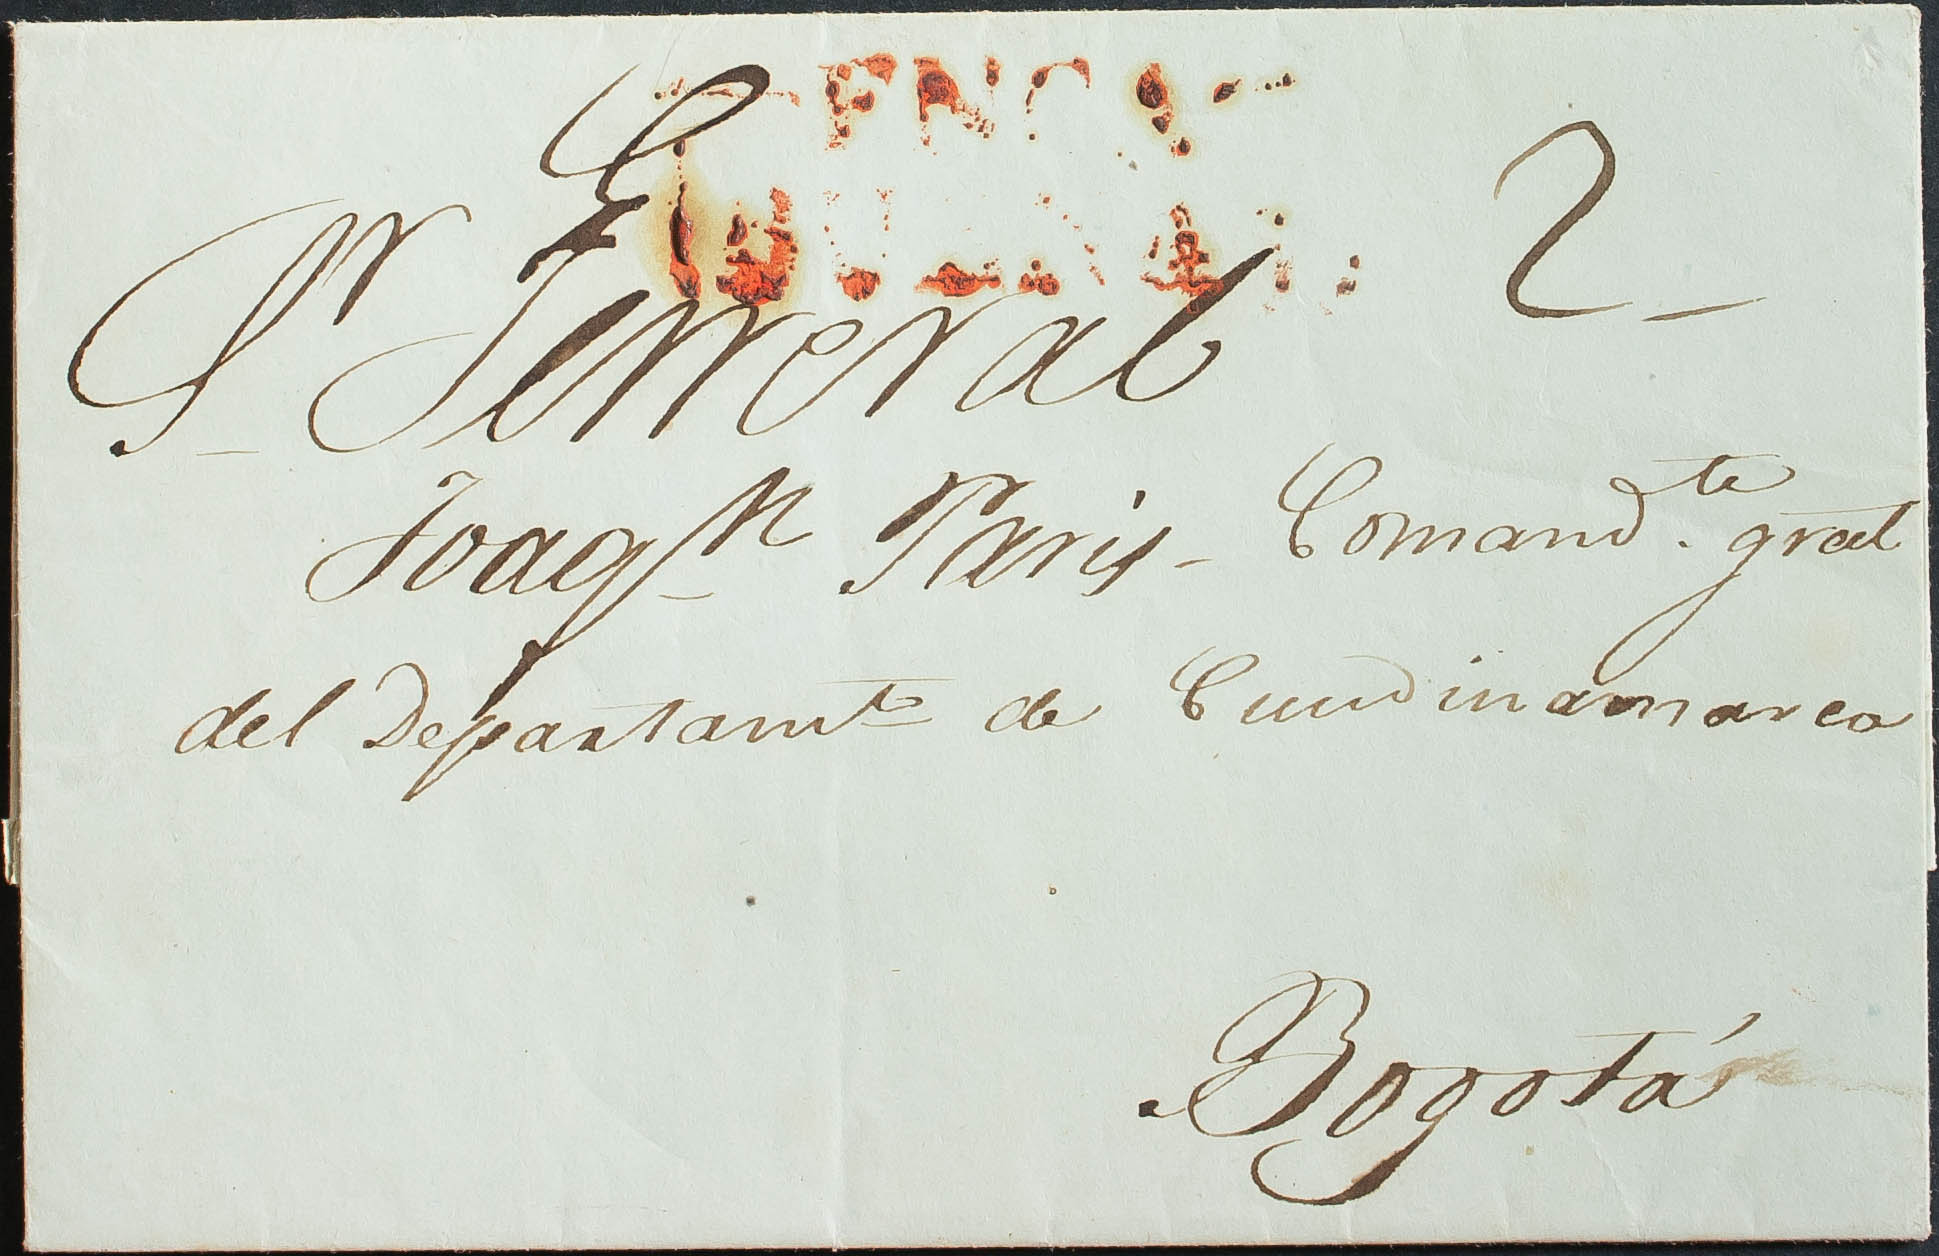 2
Sr Jeneral
Joaqn Paris Comandte gral
del Departamto de Cundinamarca
Bogotá